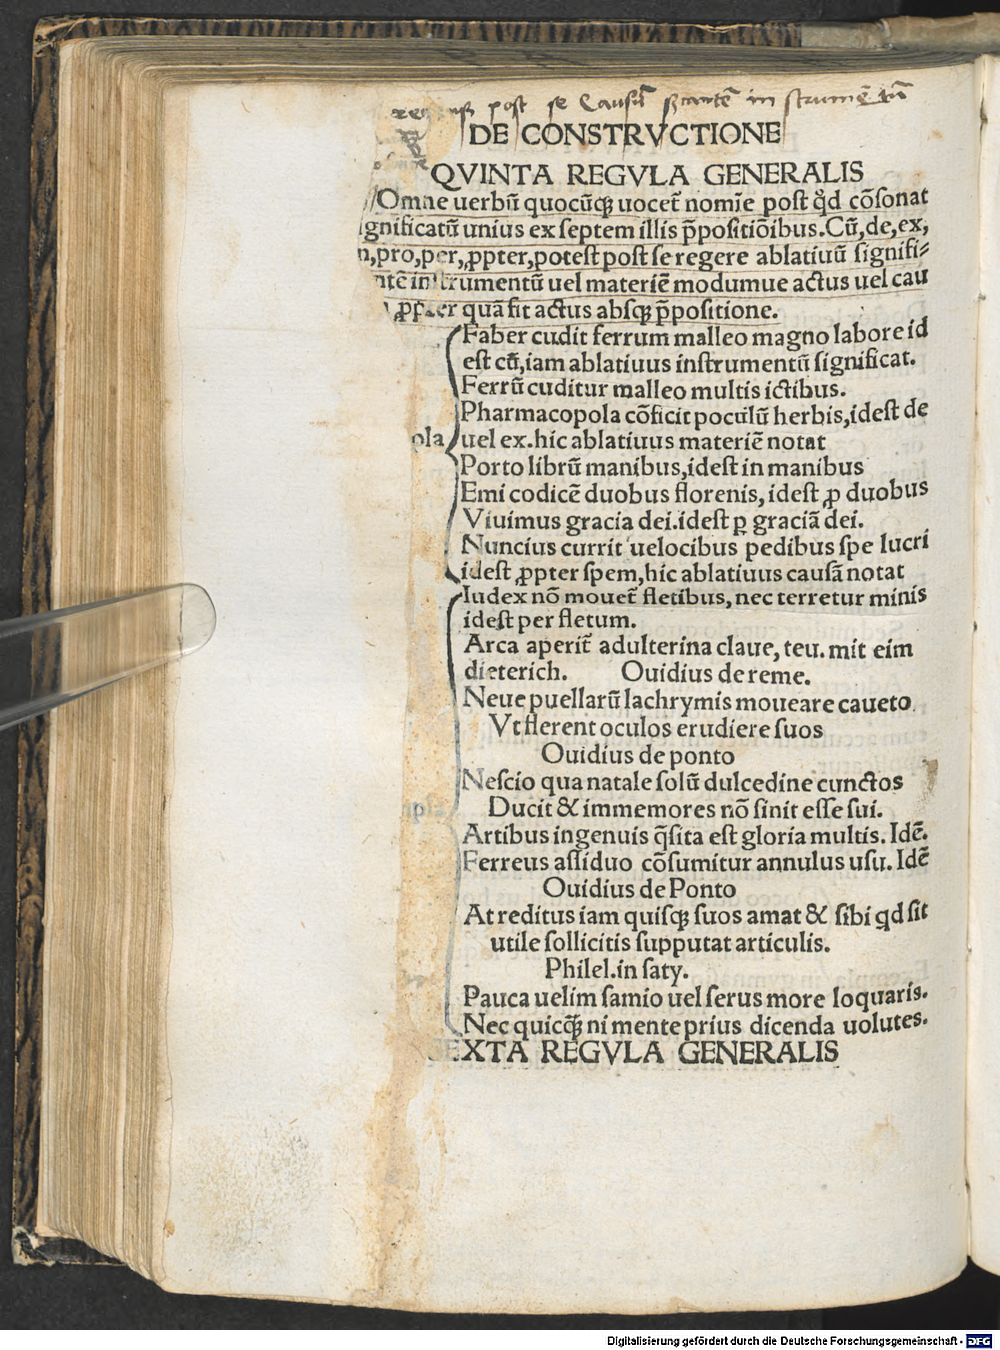 post se Causā
DE CONSTRVCTIONE
QVINTA REGVLA GENERALIS
Omne uerbū quocūqꝫ uocet̄ nomīe post qd̓ cōsonat
gnificatū unius ex septem illis p̄positiōibus. Cū, de, ex,
n, pro, per, ꝓpter, potest post se regere ablatiuū signifi⸗
ntē instrumentū uel materiē modumue actus uel cau
ꝓpter quā fit actus absqꝫ p̄positione.
Faber cudit ferrum malleo magno labore id
est cū, iam ablatiuus instrumentū significat.
Ferrū cuditur malleo multis ictibus.
Pharmacopola cōficit poculū herbis, idest de
pla uel ex. hic ablatiuus materiē notat
Porto librū manibus, idest in manibus
Emi codicē duobus florenis, idest ꝓ duobus
Viuimus gracia dei. idest ꝑ graciā dei.
Nuncius currit uelocibus pedibus spe lucri
idest ꝓpter spem, hic ablatiuus causā notat
Iudex nō mouet̄ fletibus, nec terretur minis
idest per fletum.
Arca aperit̄ adulterina claue, teu. mit eim
dieterich. Ouidius de reme.
Neue puellarū lachrymis moueare caueto
Vt flerent oculos erudiere suos
Ouidius de ponto
Nescio qua natale solū dulcedine cunctos
Ducit & immemores nō sinit esse sui.
Artibus ingenuis q̄sita est gloria multis. Idē.
Ferreus assiduo cōsumitur annulus usu. Idē
Ouidius de Ponto
At reditus iam quisqꝫ suos amat & sibi qd sit
utile sollicitis supputat articulis.
Philel. in saty.
Pauca uelim samio uel serus more loquaris.
Nec quicq̄ꝫ ni mente prius dicenda uolutes.
EXTA REGVLA GENERALIS
Digitalisierung gefördert durch die Deutsche Forschungsgemeinschaft - DFG